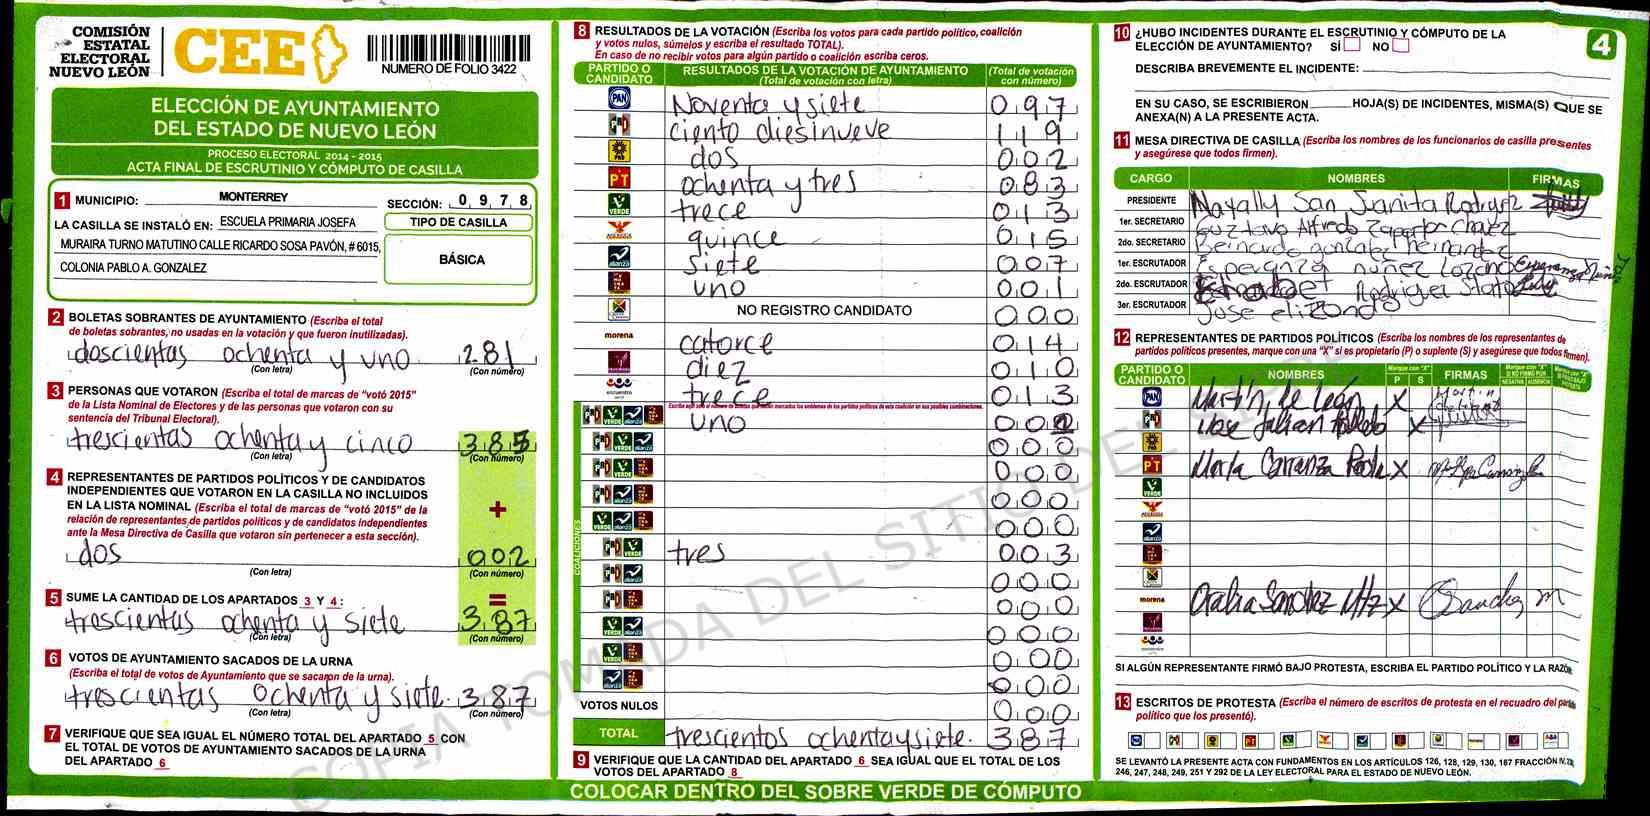 COMISIÓN
ESTATAL
ELECTORAL
NUEVO LEÓN
CEE
NUMERO DE FOLIO 3422
ELECCIÓN DE AYUNTAMIENTO
DEL ESTADO DE NUEVO LEÓN
PROCESO ELECTORAL 2014 - 2015
ACTA FINAL DE ESCRUTINIO Y CÓMPUTO DE CASILLA
1 MUNICIPIO: MONTERREY SECCIÓN: 0 9 7 8
LA CASILLA SE INSTALÓ EN: ESCUELA PRIMARIA JOSEFA
MURAIRA TURNO MATUTINO CALLE RICARDO SOSA PAVÓN, # 6015,
COLONIA PABLO A. GONZALEZ
TIPO DE CASILLA
BÁSICA
2 BOLETAS SOBRANTES DE AYUNTAMIENTO (Escriba el total
de boletas sobrantes, no usadas en la votación y que fueron inutilizadas).
doscientas ochenta y uno 281
(Con letra) (Con número)
3 PERSONAS QUE VOTARON (Escriba el total de marcas de "votó 2015"
de la Lista Nominal de Electores y de las personas que votaron con su
sentencia del Tribunal Electoral).
trescientas ochenta y cinco 385
(Con letra) (Con número)
4 REPRESENTANTES DE PARTIDOS POLÍTICOS Y DE CANDIDATOS
INDEPENDIENTES QUE VOTARON EN LA CASILLA NO INCLUIDOS
EN LA LISTA NOMINAL (Escriba el total de marcas de "votó 2015" de la
relación de representantes de partidos políticos y de candidatos independientes
ante la Mesa Directiva de Casilla que votaron sin pertenecer a esta sección).
+
dos 002
(Con letra) (Con número)
5 SUME LA CANTIDAD DE LOS APARTADOS 3 Y 4: =
trescientas ochenta y siete 387
(Con letra) (Con número)
6 VOTOS DE AYUNTAMIENTO SACADOS DE LA URNA
(Escriba el total de votos de Ayuntamiento que se sacaron de la urna).
trescientas ochenta y siete. 387
(Con letra) (Con número)
7 VERIFIQUE QUE SEA IGUAL EL NÚMERO TOTAL DEL APARTADO 5 CON
EL TOTAL DE VOTOS DE AYUNTAMIENTO SACADOS DE LA URNA
DEL APARTADO 6
8 RESULTADOS DE LA VOTACIÓN (Escriba los votos para cada partido político, coalición
y votos nulos, súmelos y escriba el resultado TOTAL).
En caso de no recibir votos para algún partido o coalición escriba ceros.
PARTIDO O CANDIDATO RESULTADOS DE LA VOTACIÓN DE AYUNTAMIENTO (Total de votación con letra) (Total de votación con número)
PAN Noventa y siete 097
PRI ciento diesinueve 119
PRD dos 002
PT ochenta y tres 083
VERDE trece 013
quince 015
alianza siete 007
uno 001
NO REGISTRO CANDIDATO 000
morena catorce 014
diez 010
encuentro trece 013
uno
000
000
000
000
COALICIONES
tres 003
000
000
000
000
000
VOTOS NULOS 000
TOTAL trescientos ochenta y siete. 387
9 VERIFIQUE QUE LA CANTIDAD DEL APARTADO 6 SEA IGUAL QUE EL TOTAL DE LOS
VOTOS DEL APARTADO 8
COLOCAR DENTRO DEL SOBRE VERDE DE CÓMPUTO
10 ¿HUBO INCIDENTES DURANTE EL ESCRUTINIO Y CÓMPUTO DE LA
ELECCIÓN DE AYUNTAMIENTO? SÍ NO
4
DESCRIBA BREVEMENTE EL INCIDENTE:
EN SU CASO, SE ESCRIBIERON HOJA(S) DE INCIDENTES, MISMA(S) QUE SE
ANEXA(N) A LA PRESENTE ACTA.
11 MESA DIRECTIVA DE CASILLA (Escriba los nombres de los funcionarios de casilla presentes
y asegúrese que todos firmen).
CARGO NOMBRES FIRMAS
PRESIDENTE Nayally San Juanita Rodryez
1er. SECRETARIO Gustavo Alfredo Chavez
2do. SECRETARIO Bernardo gonzalez hernantez
1er. ESCRUTADOR Esperanza nuñez lozano Esperanza
2do. ESCRUTADOR Rodriguez
3er. ESCRUTADOR Jose elizondo
12 REPRESENTANTES DE PARTIDOS POLÍTICOS (Escriba los nombres de los representantes de
partidos políticos presentes, marque con una "X" si es propietario (P) o suplente (S) y asegúrese que todos firmen).
PARTIDO O CANDIDATO NOMBRES Marque con "X" P S FIRMAS
PAN Martin de león X
PRI Jose Julian X
PRD
PT Carranza X
VERDE
morena Oralia Sanchez Mtz X Sanchez m
encuentro
SI ALGÚN REPRESENTANTE FIRMÓ BAJO PROTESTA, ESCRIBA EL PARTIDO POLÍTICO Y LA RAZÓN:
13 ESCRITOS DE PROTESTA (Escriba el número de escritos de protesta en el recuadro del partido
político que los presentó).
SE LEVANTÓ LA PRESENTE ACTA CON FUNDAMENTOS EN LOS ARTÍCULOS 126, 128, 129, 130, 187 FRACCIÓN IV,
246, 247, 248, 249, 251 Y 292 DE LA LEY ELECTORAL PARA EL ESTADO DE NUEVO LEÓN.
COPIA TOMADA DEL SITIO DEL